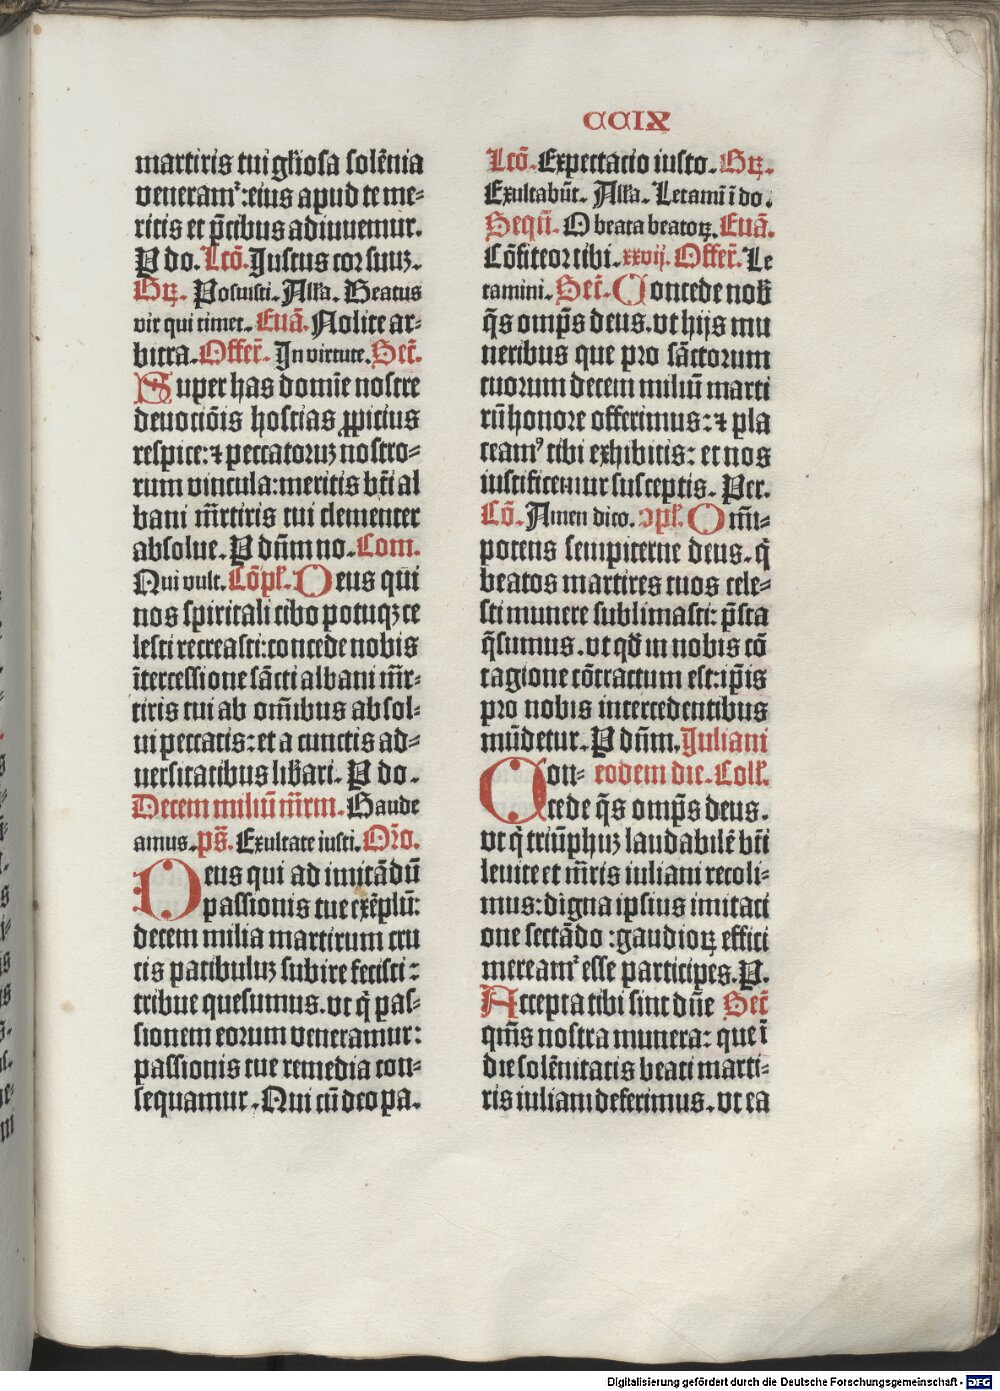 CCIX
martiris tui gl̄iosa solēnia
veneramᷣ: eius apud te me⸗
ritis et p̄cibus adiuuemur.
P do. Lcō. Iustus cor suuꝫ.
Gꝝ. Posuisti. All̄a. Beatus
vir qui timet. Euā. Nolite ar⸗
bitra. Offer̄. In virtute. Secr̄.
Super has domīe nostre
deuociōis hostias ꝓpicius
respice: ⁊ peccatoruꝫ nostro⸗
rum vincula: meritis bt̄i al
bani m̄rtiris tui clementer
absolue. P dn̄m no. Com.
Qui vult. Cōpl̄. Deus qui
nos spiritali cibo potuqꝫ ce
lesti recreasti: concede nobis
ītercessione sācti albani m̄r⸗
tiris tui ab om̄ibus absol⸗
ui peccatis: et a cunctis ad⸗
uersitatibus lib̄ari. P do.
Decem miliū m̄rm. Gaude
amus. ps̄. Exultate iusti. Or̄o.
Deus qui ad imitādū
passionis tue exēplū:
decem milia martirum cru
cis patibuluꝫ subire fecisti:
tribue quesumus. vt q̄ pas⸗
sionem eorum veneramur:
passionis tue remedia con⸗
sequamur. Qui cū deo pa.
Lcō. Expectacio iusto. Gꝝ.
Exultabūt. All̄a. Letamī ī do.
Sequē. O beata beatoꝝ. Euā.
Cōfiteor tibi. xxvij. Offer̄. Le
tamini. Secr̄. Concede nob̄
q̄s omp̄s deus. vt hijs mu
neribus que pro sāctorum
tuorum decem miliū marti
rū honore offerimus: ⁊ pla
ceamꝰ tibi exhibitis: et nos
iustificemur susceptis. Per.
Cō. Amen dico. ꝯpl̄. Om̄i⸗
potens sempiterne deus. q̄
beatos martires tuos cele⸗
sti munere sublimasti: p̄sta
q̄sumus. vt qd̄ in nobis cō
tagione cōtractum est: ip̄is
pro nobis intercedentibus
mūdetur. P dn̄m. Iuliani
Con⸗ eodem die. Coll̄.
cede q̄s omp̄s deus.
vt q̄ triūphuꝫ laudabilē bt̄i
leuite et m̄ris iuliani recoli⸗
mus: digna ipsius imitaci
one sectādo: gaudioꝝ effici
mereamᷣ esse participes. P.
Accepta tibi sint dn̄e Secr̄
qm̄s nostra munera: que ī
die solēnitatis beati marti⸗
ris iuliani deferimus. vt ea
Digitalisierung gefördert durch die Deutsche Forschungsgemeinschaft - DFG